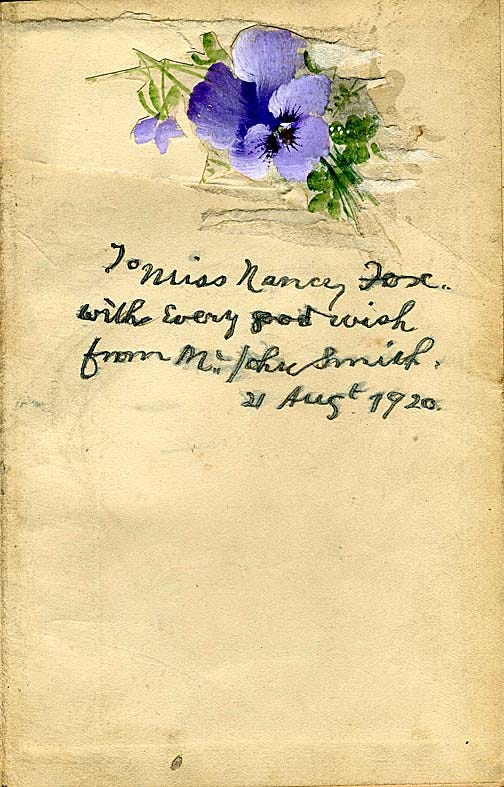 To Miss Nancy Fox.
with Every good wish
from Mr. John Smith.
21 Augt 1920.